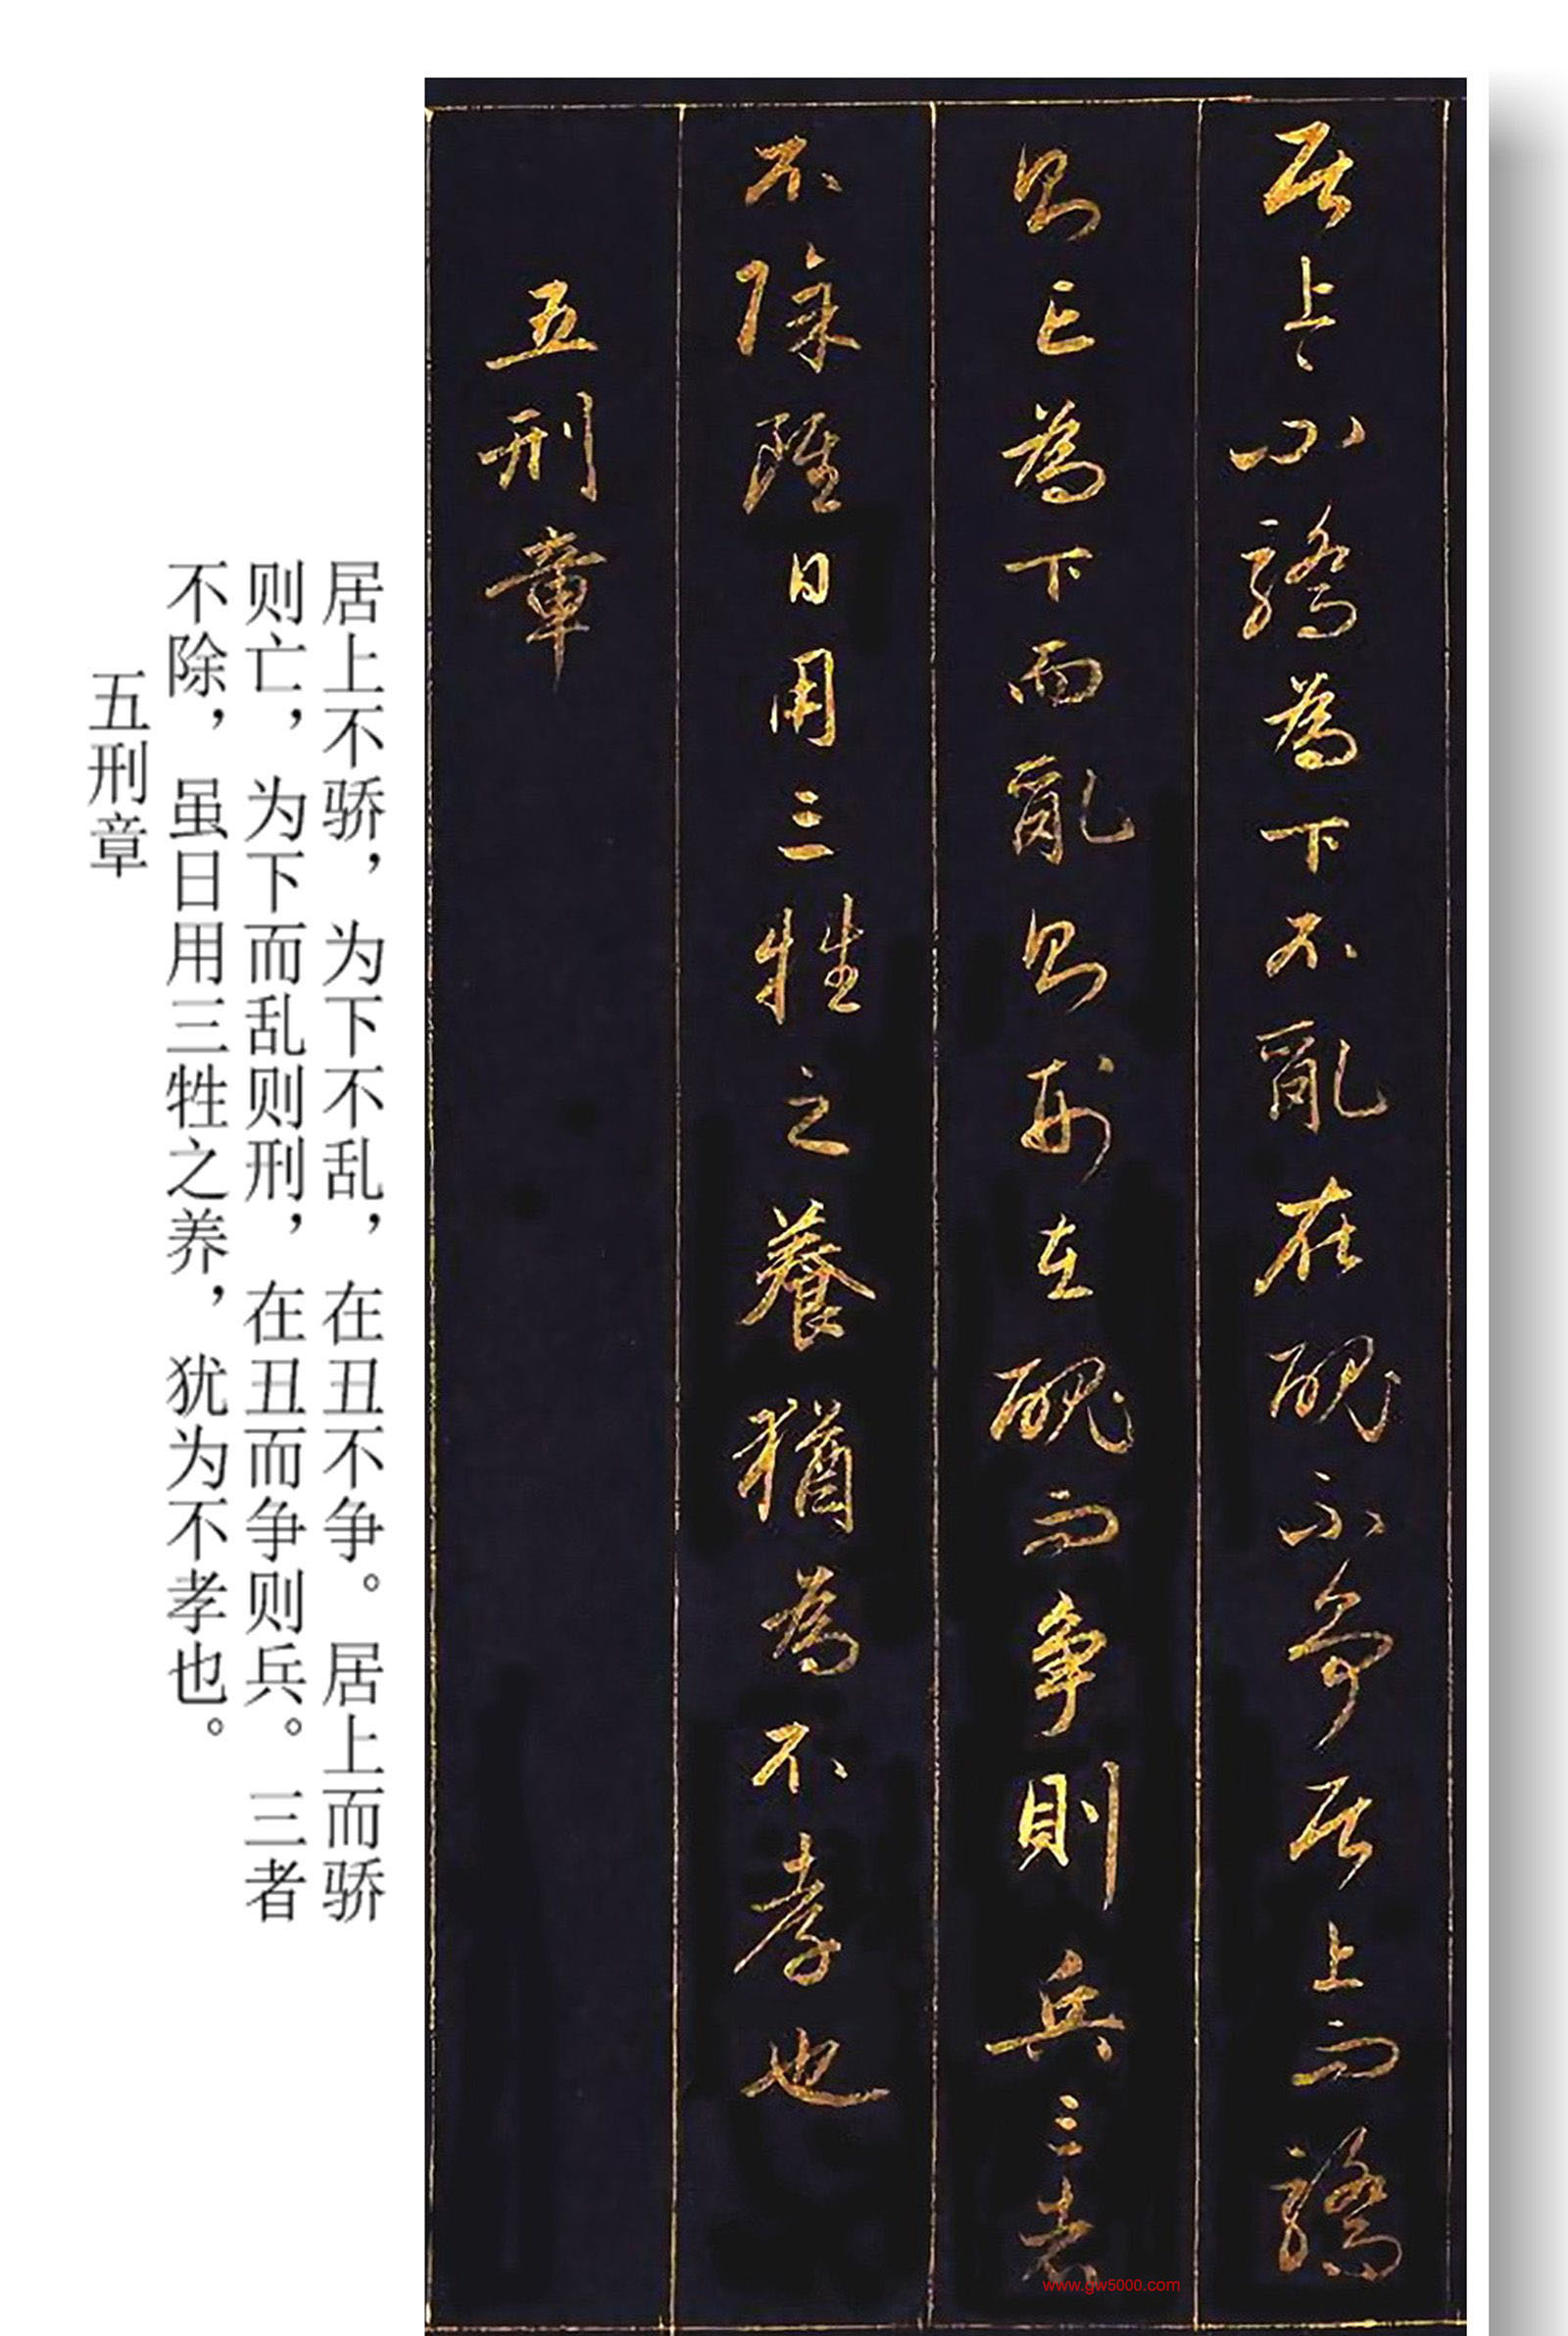 居上不驕為下不亂在醜不爭居上而驕
則亡為下而亂則刑在醜而爭則兵三者
不除雖日用三牲之養猶為不孝也
五刑章
居上不骄，为下不乱，在丑不争。居上而骄
则亡，为下而乱则刑，在丑而争则兵。三者
不除，虽日用三牲之养，犹为不孝也。
五刑章
www.gw5000.com